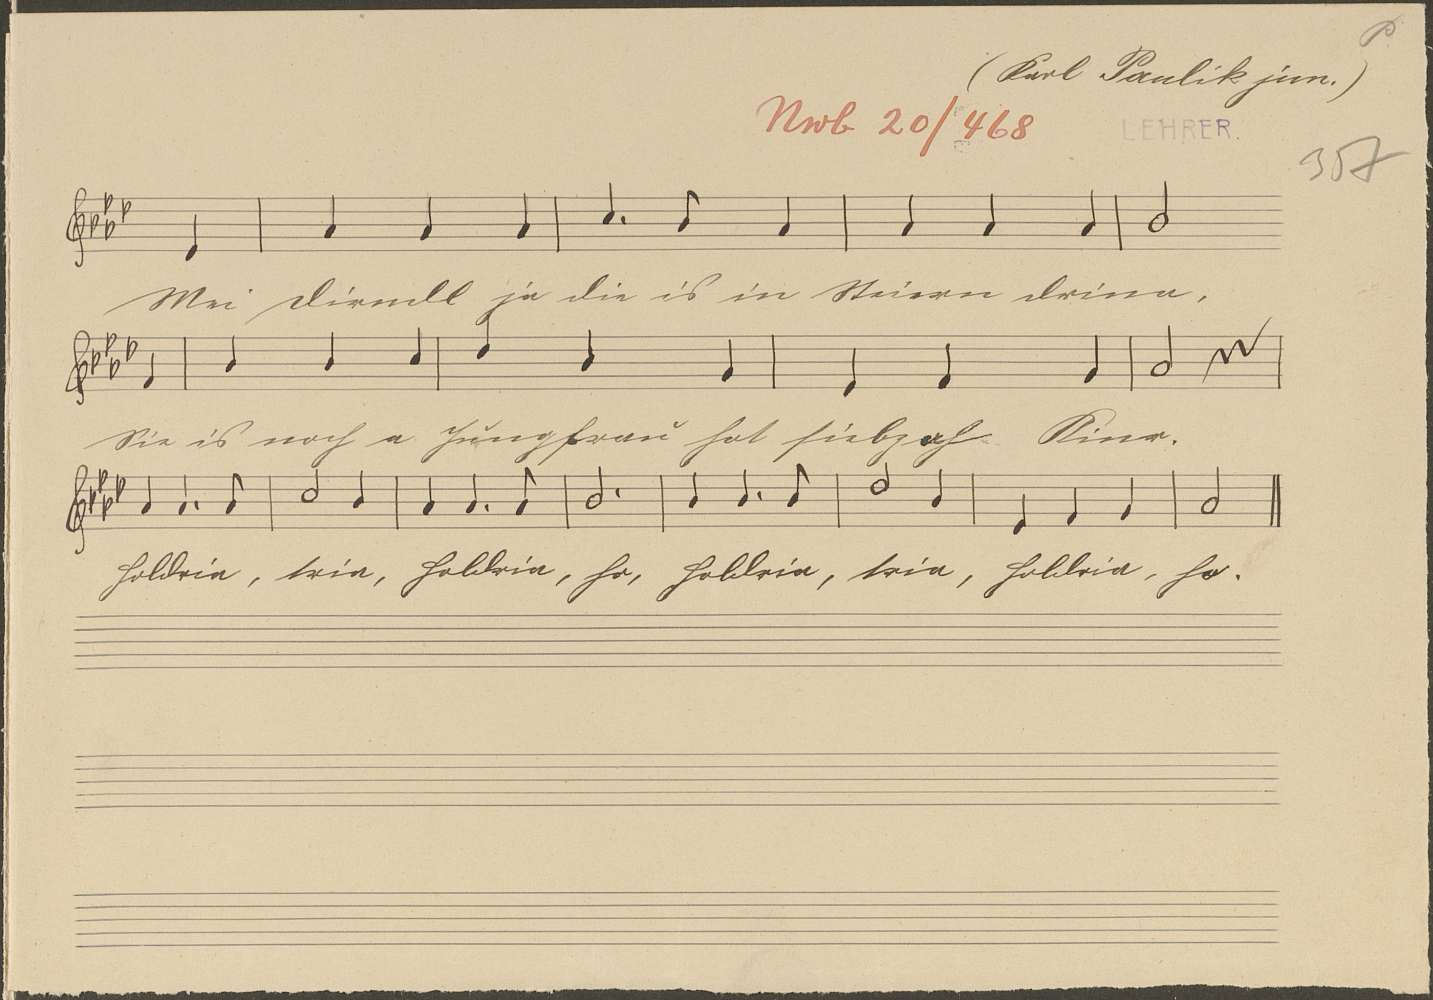 P.
(Karl Paulik jun.)
Nwb 20/468
LEHRER.
357
Mei Dirndl ja die is in Steiern drina,
Sie is noch a Jungfrau hot siebzah Kina.
Holdria, tria, Holdria, ho, Holdria, tria, Holdria, ho.